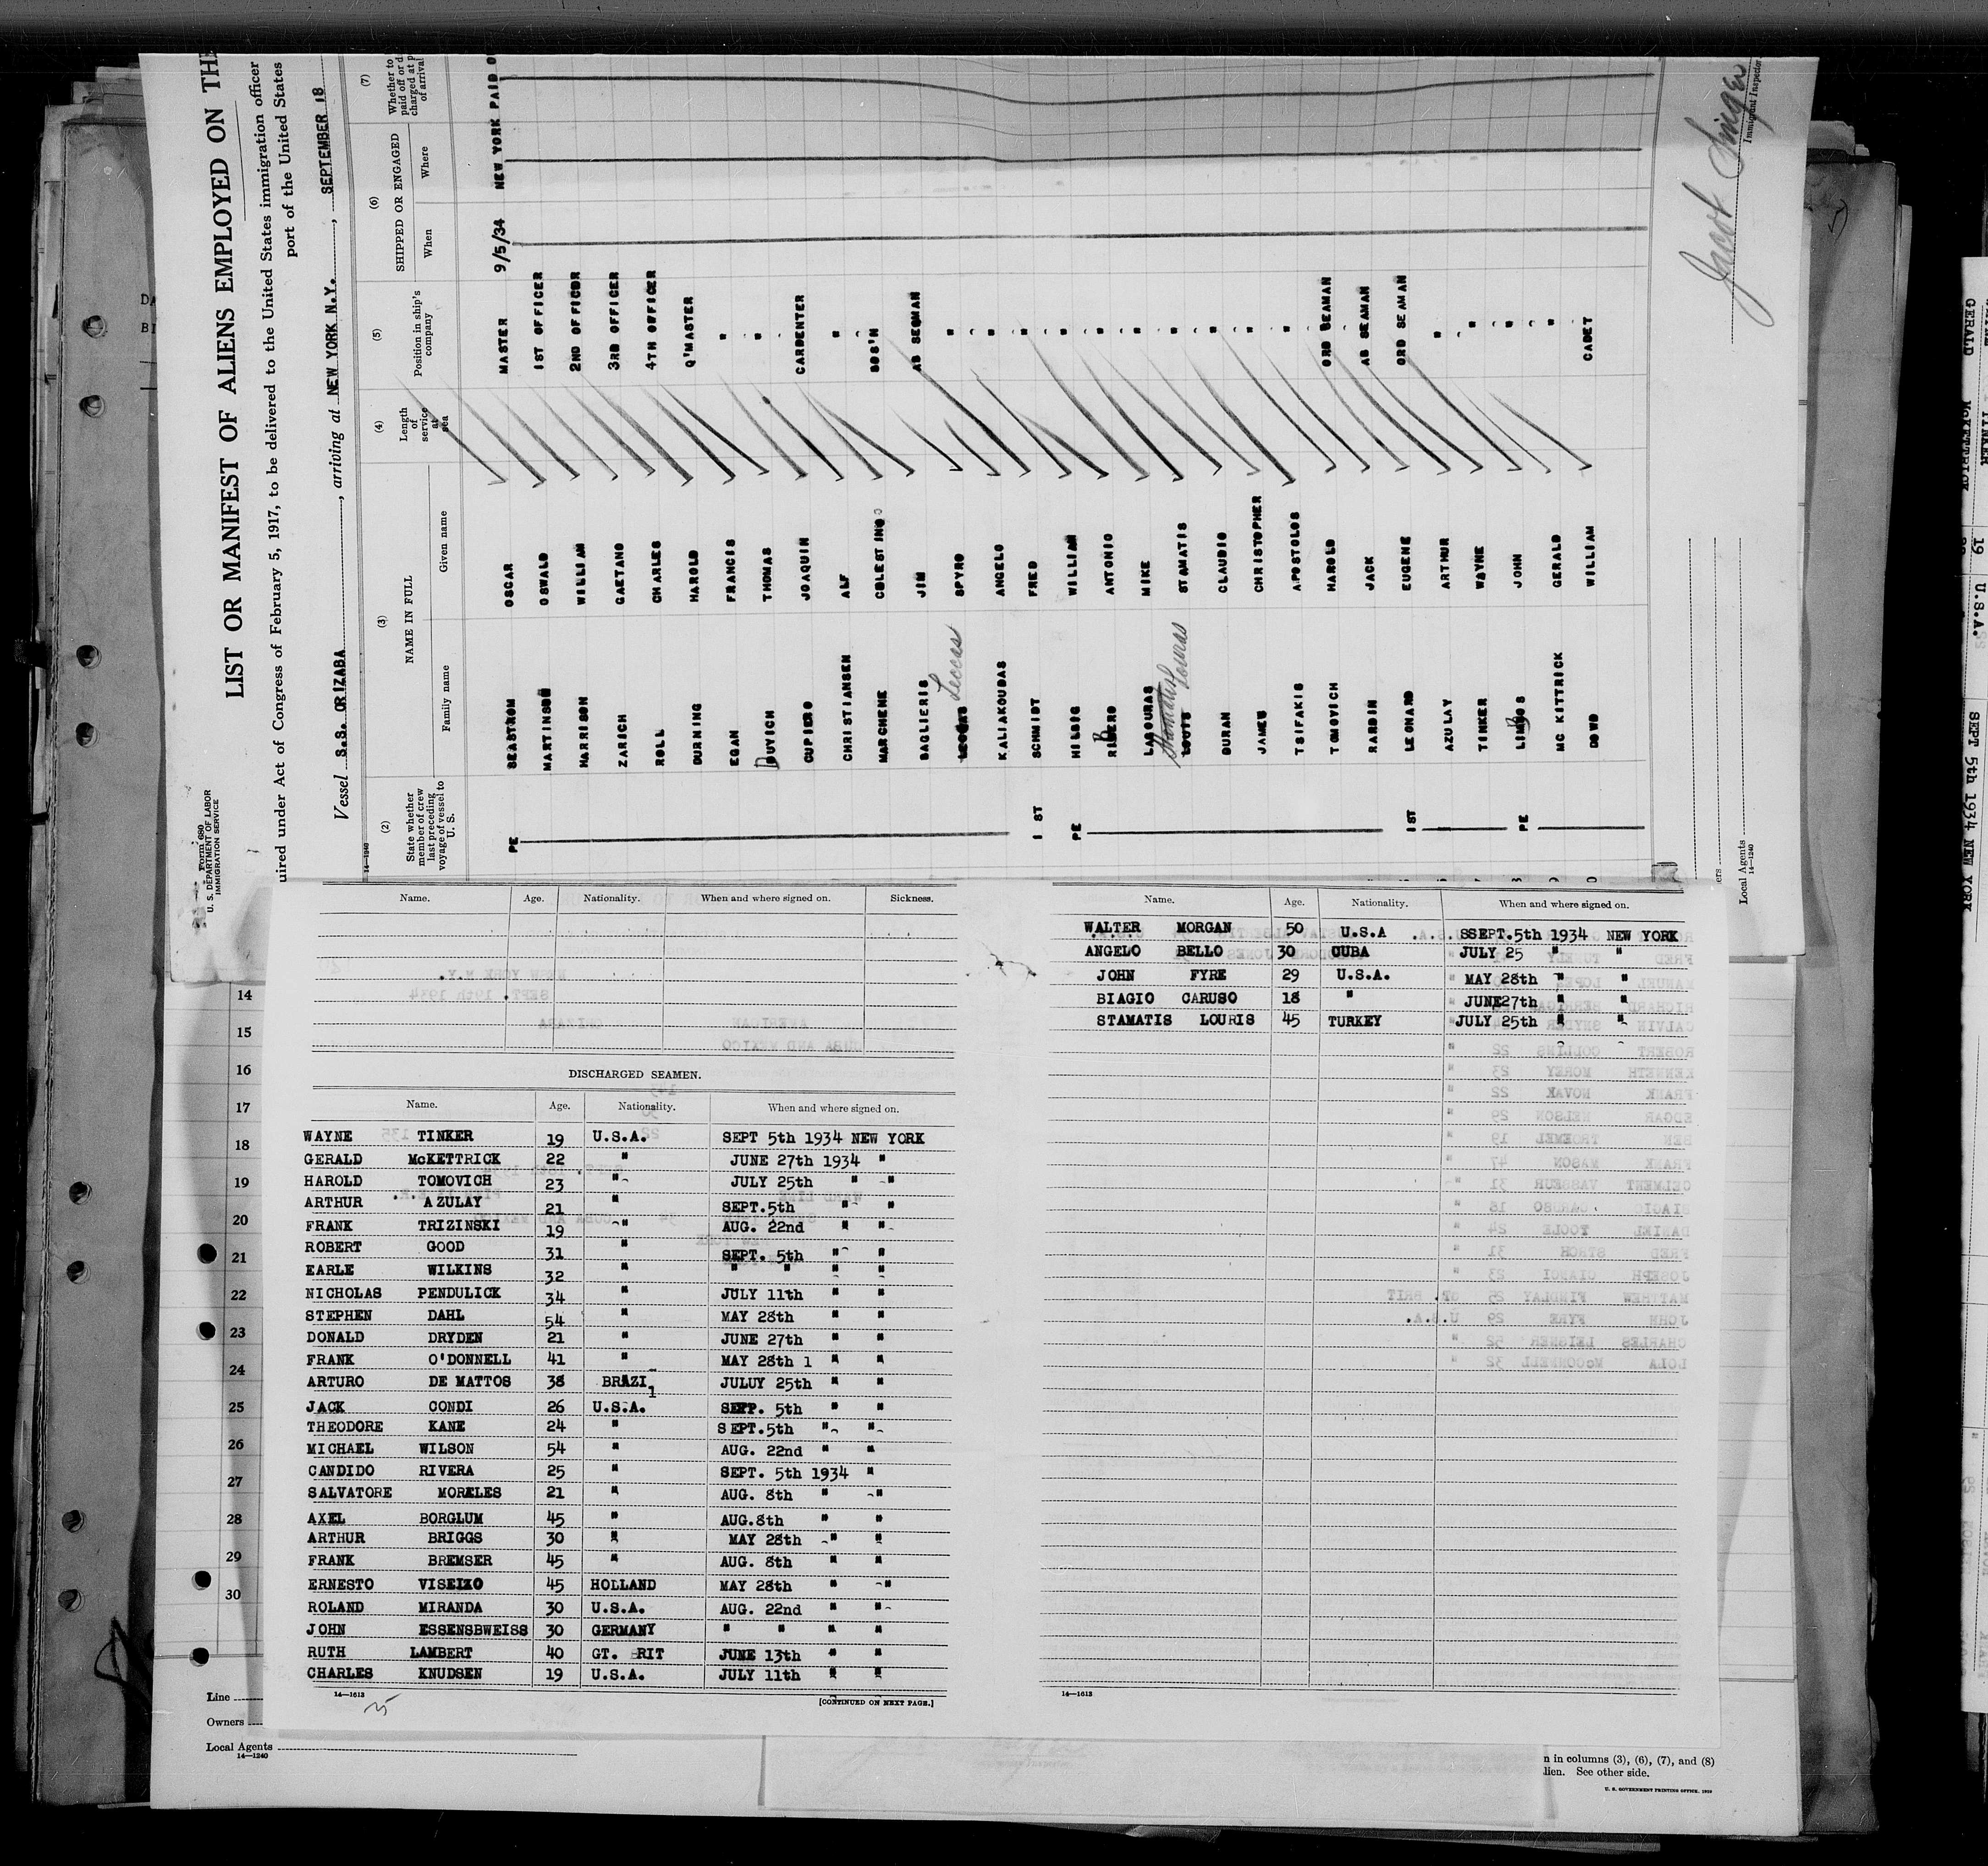 Form 680
U. S. DEPARTMENT OF LABOR
IMMIGRATION SERVICE
LIST OR MANIFEST OF ALIENS EMPLOYED ON
uired under Act of Congress of February 5, 1917, to be delivered to the United States immigration officer
port of the United States
Vessel S.S. ORIZABA, arriving at NEW YORK N.Y., SEPTEMBER 18
(2) (3) (4) (5) (6) (7)
State whether member of crew last preceding voyage of vessel to U. S.
NAME IN FULL
Family name Given name
Length of service at sea
Position in ship's company
SHIPPED OR ENGAGED
When Where
Whether to
paid off or
charged at
of arrival
14—1240
PE SEASTROM OSCAR MASTER 9/5/34 NEW YORK PAID
MARTINSON OSWALD 1ST OFFICER
HARRISON WILLIAM 2ND OFFICER
ZARICH GAETANO 3RD OFFICER
ROLL CHARLES 4TH OFFICER
DURNING HAROLD Q'MASTER
EGAN FRANCIS "
DUVICH THOMAS "
CUPIERO JOAQUIN CARPENTER
CHRISTIANSEN ALF "
MARCHENE CELESTINO BOS'N
BAGLIERIS JIM AB SEAMAN
Leccas SPYRO "
KALIAKOUDAS ANGELO "
1 ST SCHMIDT FRED "
PE HILBIG WILLIAM "
RIBERO ANTONIO "
LAGOURAS MIKE "
LOUIS Stamatis Louras STAMATIS "
DURAN CLAUDIO "
JAMES CHRISTOPHER "
TSIFAKIS APOSTOLOS "
TOMOVICH HAROLD ORD SEAMAN
RABDIN JACK AB SEAMAN
1ST LEONARD EUGENE ORD SEAMAN
AZULAY ARTHUR "
TINKER WAYNE "
PE LIMBOS JOHN "
MC KITTRICK GERALD "
DOWD WILLIAM CADET
Immigrant Inspector
Local Agents
14—1240
Name. Age. Nationality. When and where signed on. Sickness.
DISCHARGED SEAMEN.
Name. Age. Nationality. When and where signed on.
WAYNE TINKER 19 U.S.A. SEPT 5th 1934 NEW YORK
GERALD McKETTRICK 22 " JUNE 27th 1934 "
HAROLD TOMOVICH 23 " JULY 25th " "
ARTHUR AZULAY 21 " SEPT.5th " "
FRANK TRIZINSKI 19 " AUG. 22nd " "
ROBERT GOOD 31 " SEPT. 5th " "
EARLE WILKINS 32 " " " " "
NICHOLAS PENDULICK 34 " JULY 11th " "
STEPHEN DAHL 54 " MAY 28th " "
DONALD DRYDEN 21 " JUNE 27th " "
FRANK O'DONNELL 41 " MAY 28th 1 " "
ARTURO DE MATTOS 38 BRAZIl JULUY 25th " "
JACK CONDI 26 U.S.A. SEPT. 5th " "
THEODORE KANE 24 " SEPT.5th " "
MICHAEL WILSON 54 " AUG. 22nd " "
CANDIDO RIVERA 25 " SEPT. 5th 1934 "
SALVATORE MORALES 21 " AUG. 8th " "
AXEL BORGLUM 45 " AUG.8th " "
ARTHUR BRIGGS 30 " MAY 28th " "
FRANK BREMSER 45 " AUG. 8th " "
ERNESTO VISEIZO 45 HOLLAND MAY 28th " "
ROLAND MIRANDA 30 U.S.A. AUG. 22nd " "
JOHN ESSENSBWEISS 30 GERMANY " " " "
RUTH LAMBERT 40 GT. BRIT JUNE 13th " "
CHARLES KNUDSEN 19 U.S.A. JULY 11th " "
14—1613 [CONTINUED ON NEXT PAGE.]
25
Name. Age. Nationality. When and where signed on.
WALTER MORGAN 50 U.S.A SSEPT.5th 1934 NEW YORK
ANGELO BELLO 30 CUBA JULY 25 " "
JOHN FYRE 29 U.S.A. MAY 28th " "
BIAGIO CARUSO 18 " JUNE27th " "
STAMATIS LOURIS 45 TURKEY JULY 25th " "
14—1613
14
15
16
17
18
19
20
21
22
23
24
25
26
27
28
29
30
Line
Owners
Local Agents
14—1240
n in columns (3), (6), (7), and (8)
lien. See other side.
U. S. GOVERNMENT PRINTING OFFICE
GERALD McKETTRICK
TINKER 19 U.S.A. SEPT 5th 1934 NEW YORK